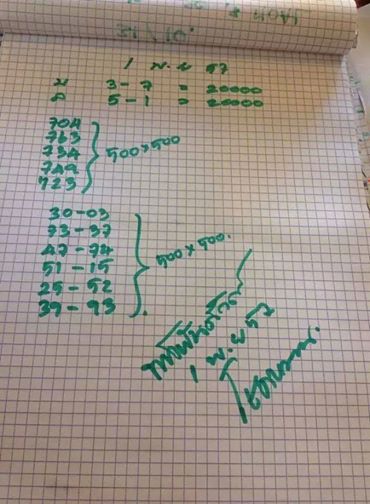 1 พ.ย 57
บ 3-7 = 20000
ล 5-1 = 20000
704
763
734
749
723
500×500
30-03
73-37
47-74
51-15
25-52
39-93
500×500.
1 พ.ย 57